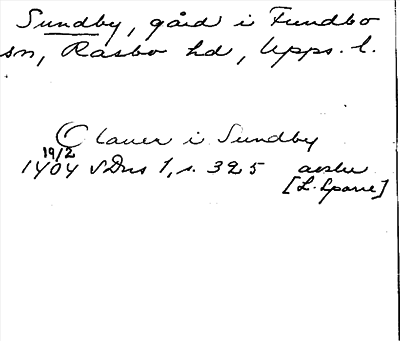 Sundby, gård i Fundbo
sn, Rasbo hd, Upps. l.
Clauer i Sundby
19/2
1404 SDns 1, s. 325 avskr
[L. Sparre]